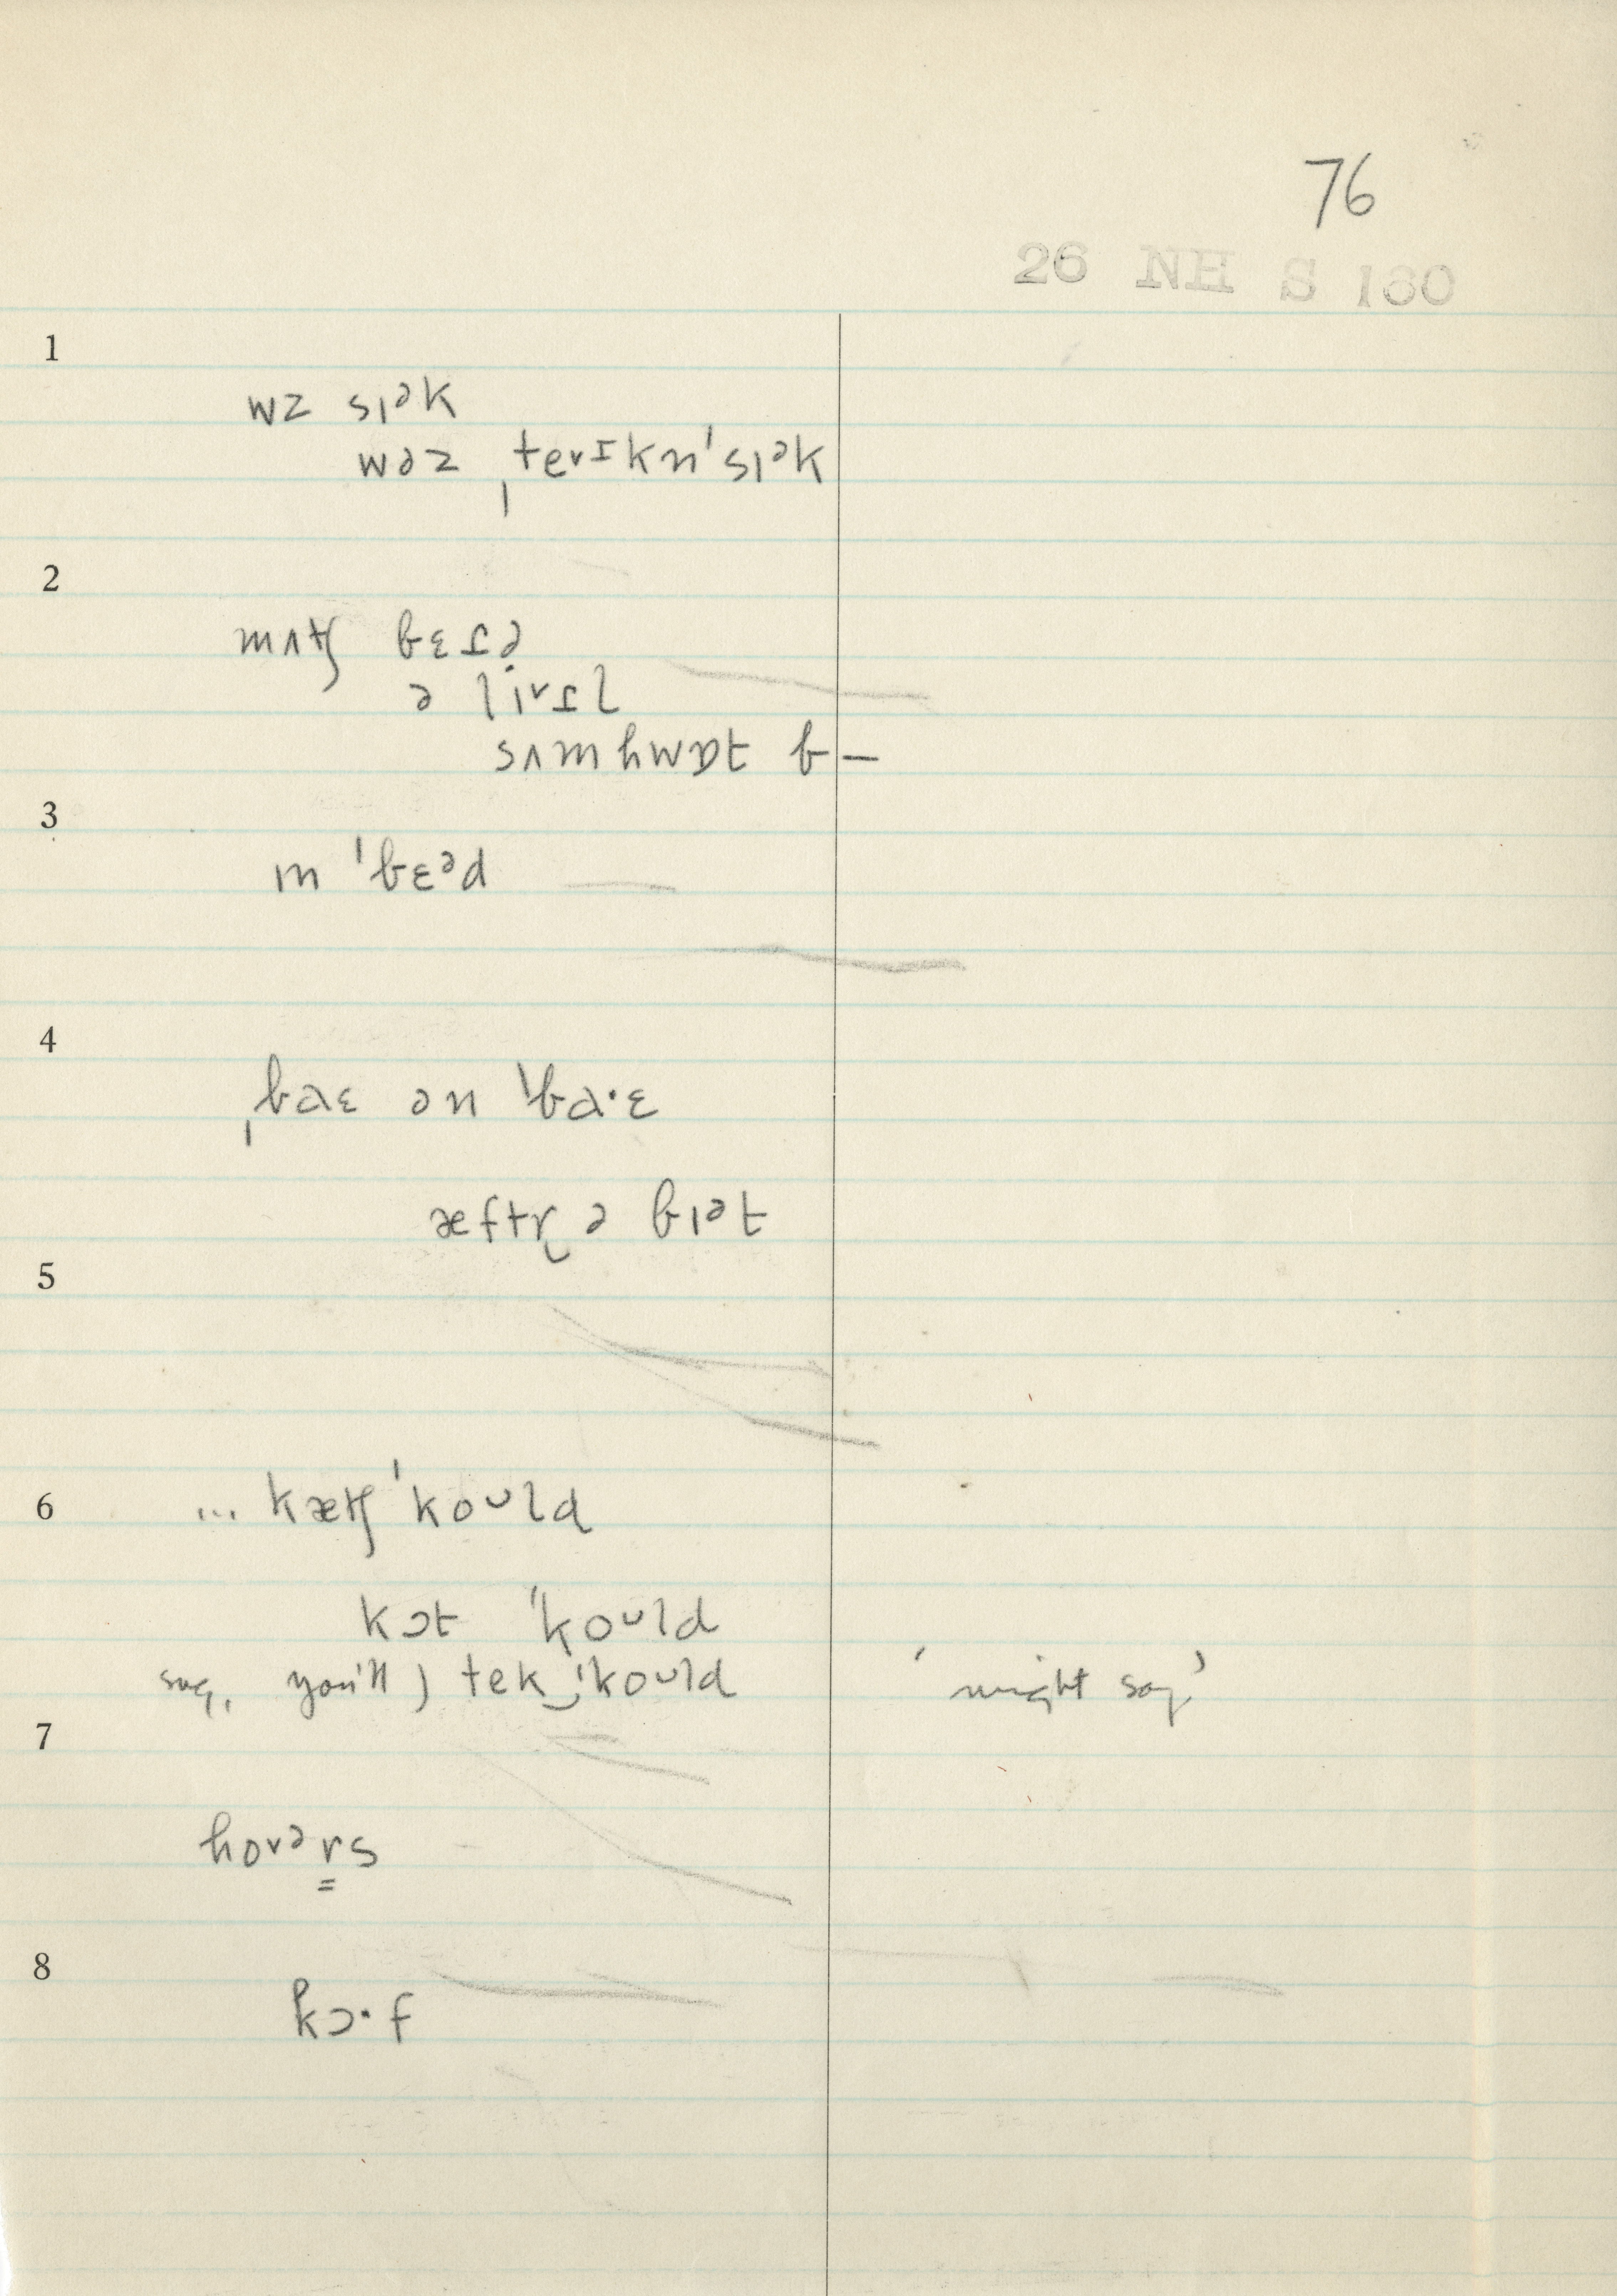 76
26 NH S 160
1
wz sɪᵊk
wəz ˌteᵛɪkn ˈsɪᵊk
2
mʌʧ bɛɾə
ə lɪᵛɾl
sʌmhwɒt b—
3
ɪn ˈbɛᵊd
4
ˌbaɛ ən ˈba·ɛ
æftɚ ə bɪət
5
6
... kæʧ ˈkoᵘld
kɔt ˈkoᵘld
say, you'll) tek‿ˈkoᵘld 'might say'
7
hoᵛərs
8
kɔ·f